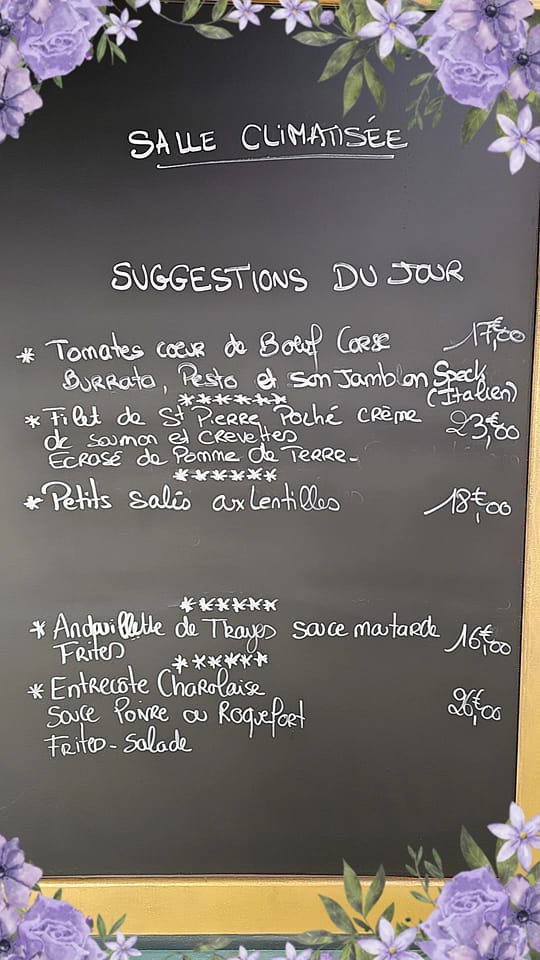 SALLE CLIMATISÉE
SUGGESTIONS DU JOUR
* Tomates coeur de Boeuf Corse 17€,00
Burrata, Pesto et son Jambon Speck
(Italien)
******
* Filet de St Pierre Poché crème 23€,00
de saumon et crevettes
Ecrasé de Pomme de Terre-
******
* Petits salés aux Lentilles 18€,00
******
* Andouillette de Troyes sauce moutarde 16€,00
Frites
******
* Entrecote Charolaise
Sauce Poivre ou Roquefort 26€,00
Frites - Salade